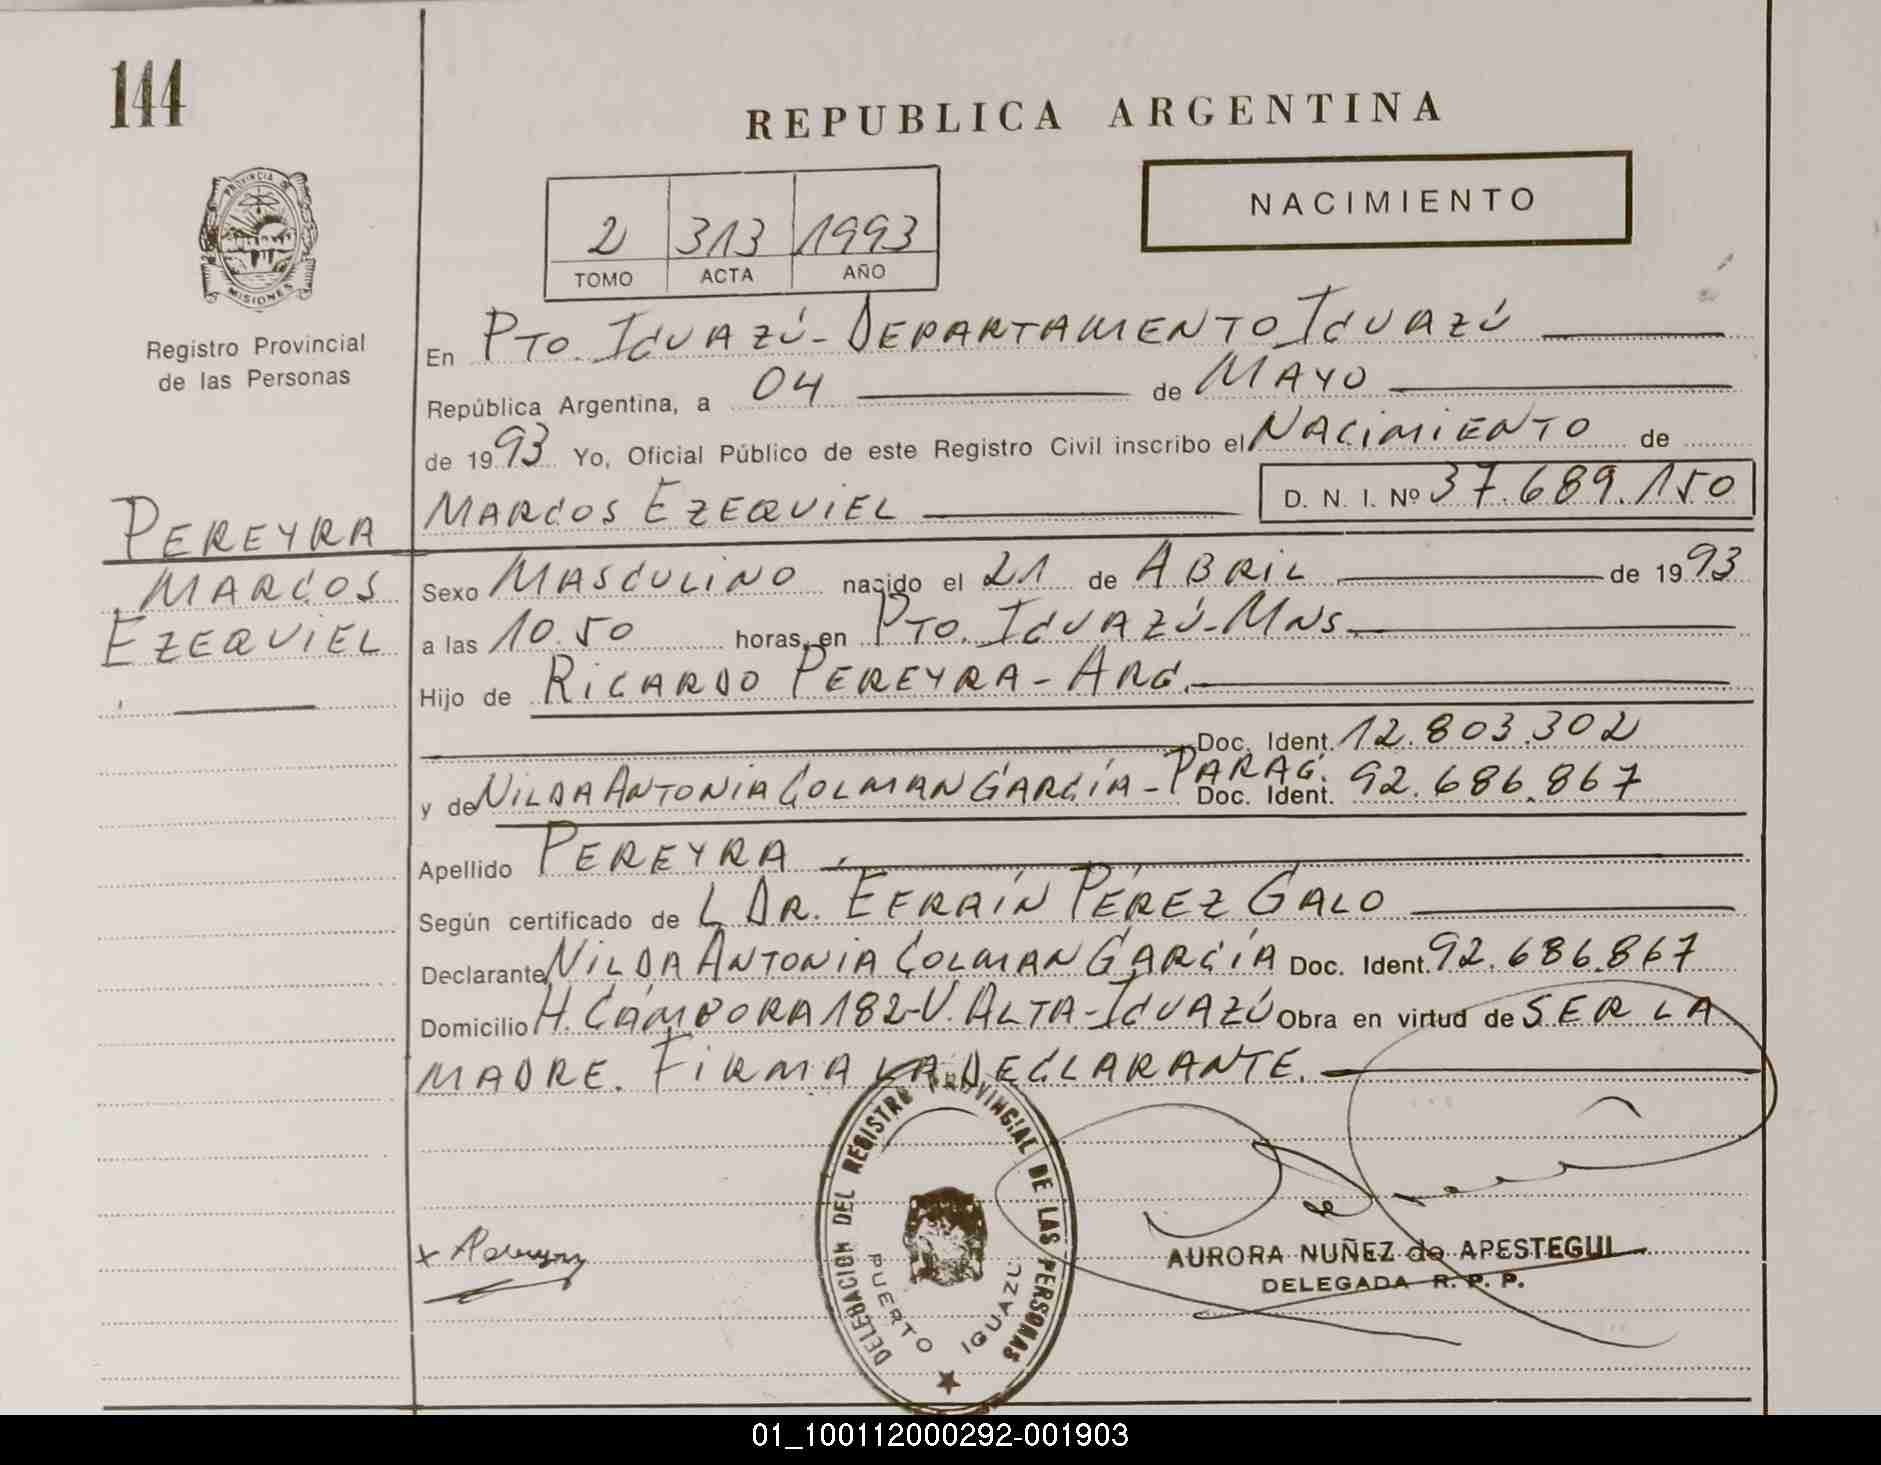 144
REPUBLICA ARGENTINA
NACIMIENTO
PROVINCIA DE
MISIONES
2 313 1993
TOMO ACTA AÑO
Registro Provincial
de las Personas
En PTO. IGUAZÚ - DEPARTAMENTO IGUAZÚ
República Argentina, a 04 de MAYO
de 1993 Yo, Oficial Público de este Registro Civil inscribo el NACIMIENTO de
MARCOS EZEQUIEL D. N. I. Nº 37.689.150
PEREYRA
MARCOS
EZEQUIEL
Sexo MASCULINO nacido el 21 de ABRIL de 1993
a las 10.50 horas, en PTO. IGUAZÚ - MNS.
Hijo de RICARDO PEREYRA - ARG.
Doc. Ident. 12.803.302
y de NILDA ANTONIA COLMAN GARCÍA - PARAG. Doc. Ident. 92.686.867
Apellido PEREYRA
Según certificado de L DR. EFRAÍN PÉREZ GALO
Declarante NILDA ANTONIA COLMAN GARCÍA Doc. Ident. 92.686.867
Domicilio H. CÁMPORA 182 - V. ALTA - IGUAZÚ Obra en virtud de SER LA
MADRE. FIRMA LA DECLARANTE.
DELEGACION DEL REGISTRO PROVINCIAL DE LAS PERSONAS
PUERTO IGUAZU
AURORA NUÑEZ de APESTEGUI
DELEGADA R. P. P.
01_100112000292-001903